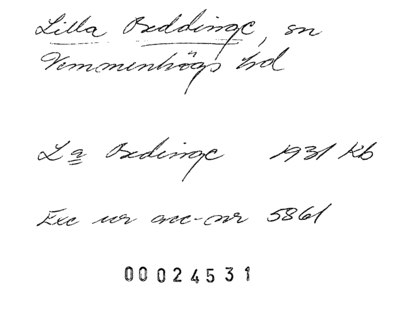 Lilla Beddinge, sn
Vemmenhögs hd
La Bedinge 1931 Kb
Exc ur acc-nr 5861
00024531